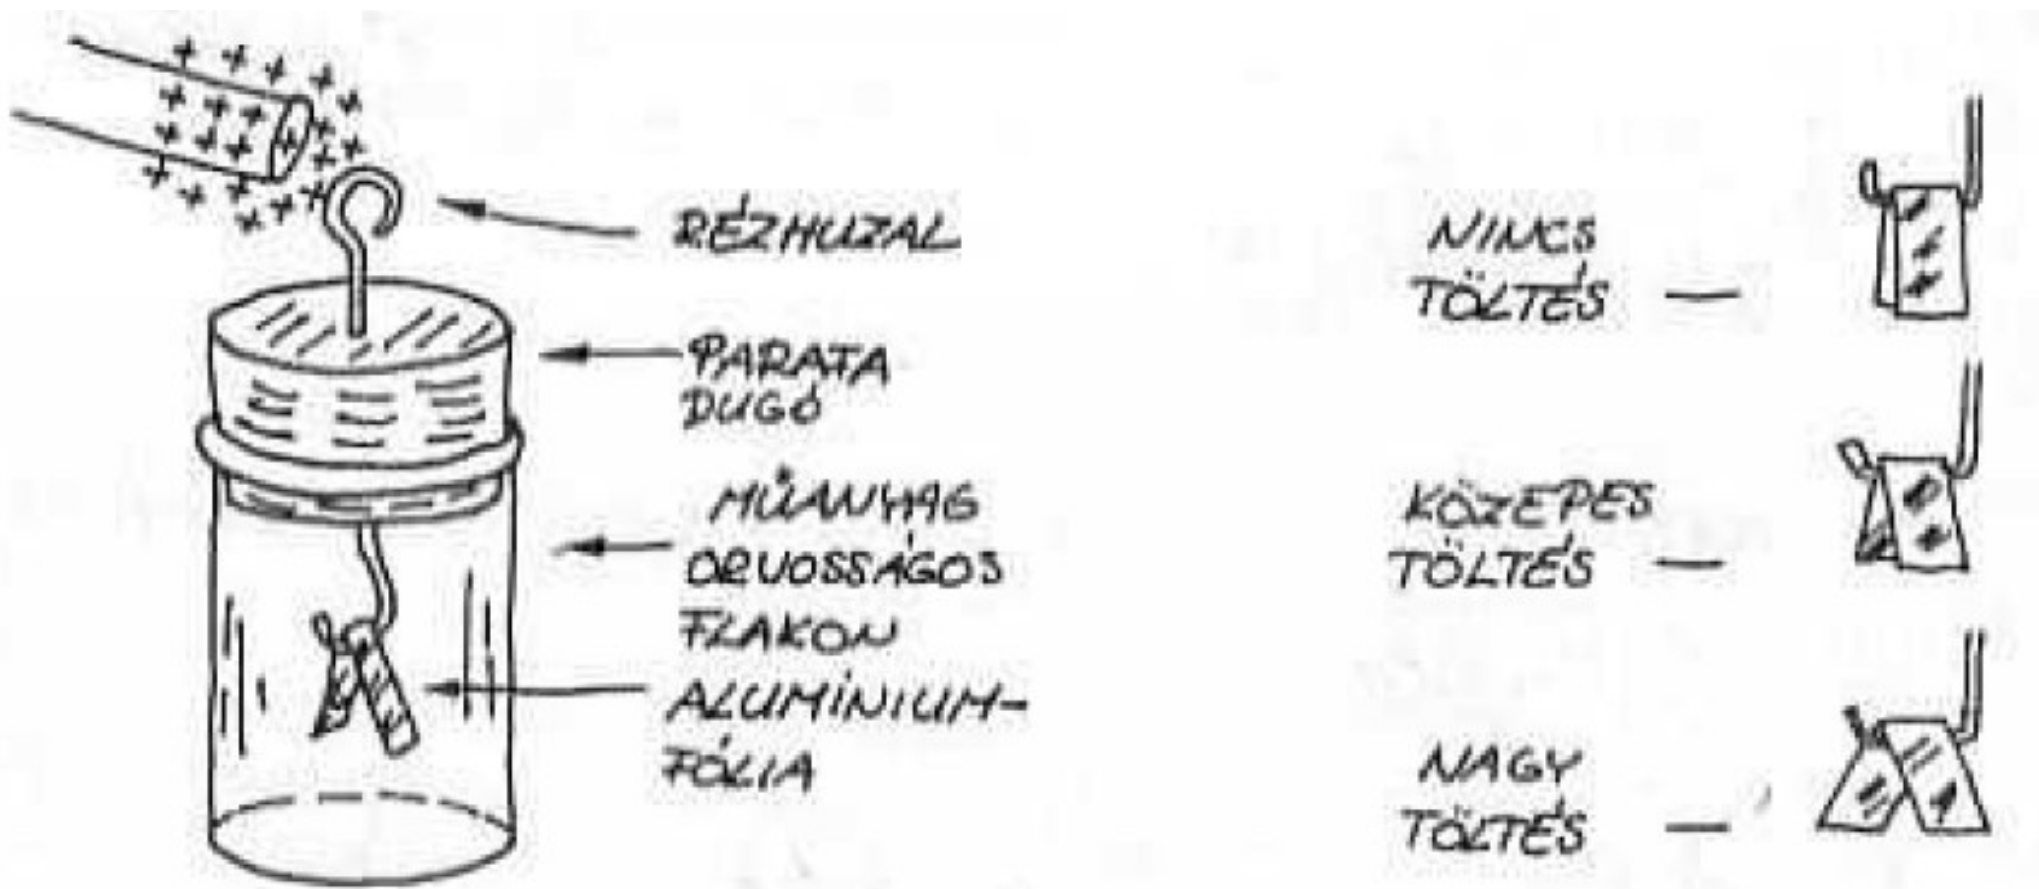 RÉZHUZAL
PARAFA
DUGÓ
MŰANYAG
ORVOSSÁGOS
FLAKON
ALUMÍNIUM-
FÓLIA
NINCS
TÖLTÉS —
KÖZEPES
TÖLTÉS —
NAGY
TÖLTÉS —